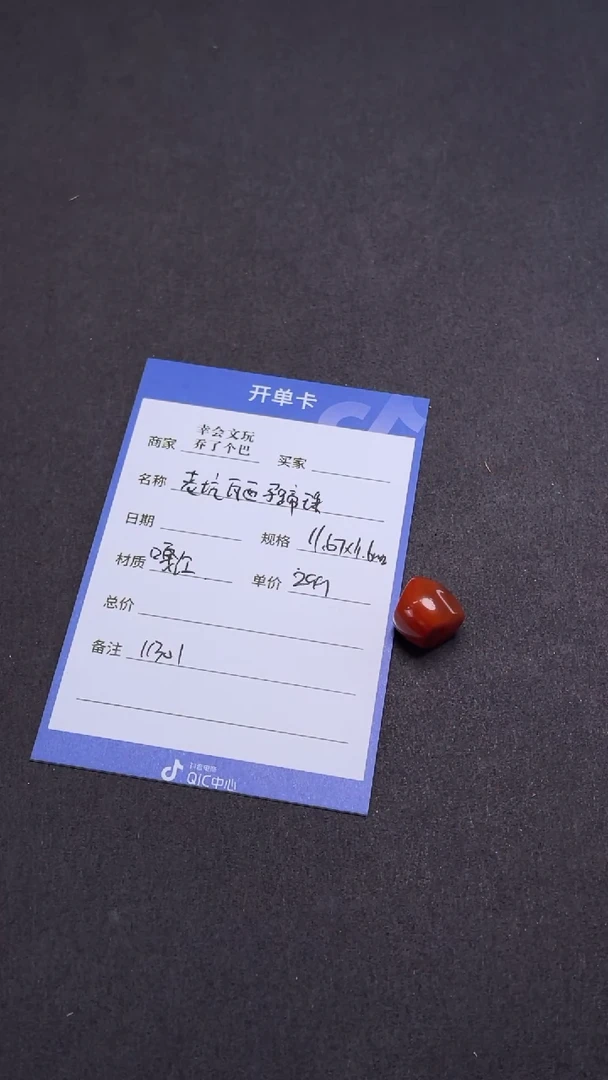 开单卡
幸会文玩
商家 乔了个巴 买家
名称 老坑瓦西
日期 规格 11.67x11.6mm
材质 嘎红 单价 299
总价
备注 11301
抖音电商
QIC中心